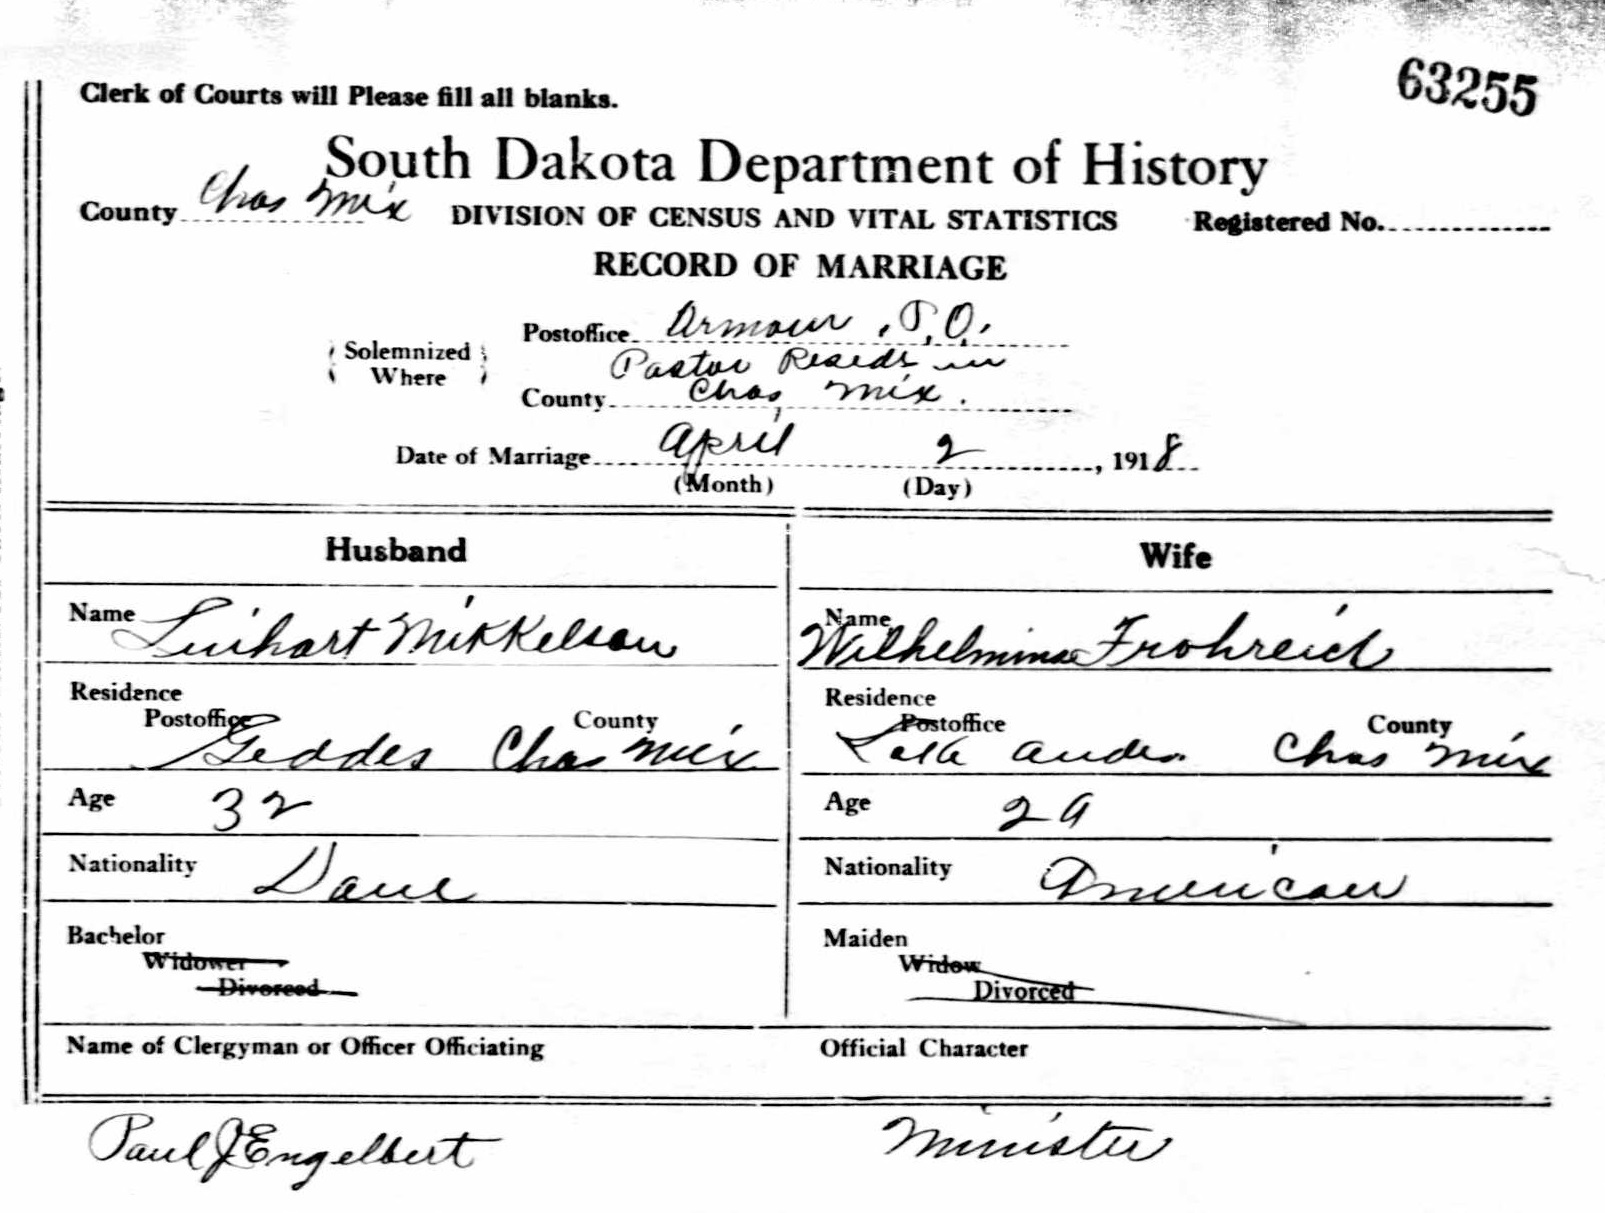 63255
Clerk of Courts will Please fill all blanks.
South Dakota Department of History
County Chas Mix DIVISION OF CENSUS AND VITAL STATISTICS Registered No.
RECORD OF MARRIAGE
Postoffice Armour, P.O.
Solemnized Where
Pastor Resedr in
County Chas, Mix.
Date of Marriage April 2, 1918
(Month) (Day)
Husband Wife
Name Linhart Mikkelsen
Name Wilhelmina Frohreich
Residence Residence
Postoffice County Postoffice County
Geddes Chas Mix Lake Andes Chas Mix
Age 32 Age 29
Nationality Dane Nationality American
Bachelor Maiden
Widower Widow
Divorced Divorced
Name of Clergyman or Officer Officiating Official Character
Paul J Engelbert Minister